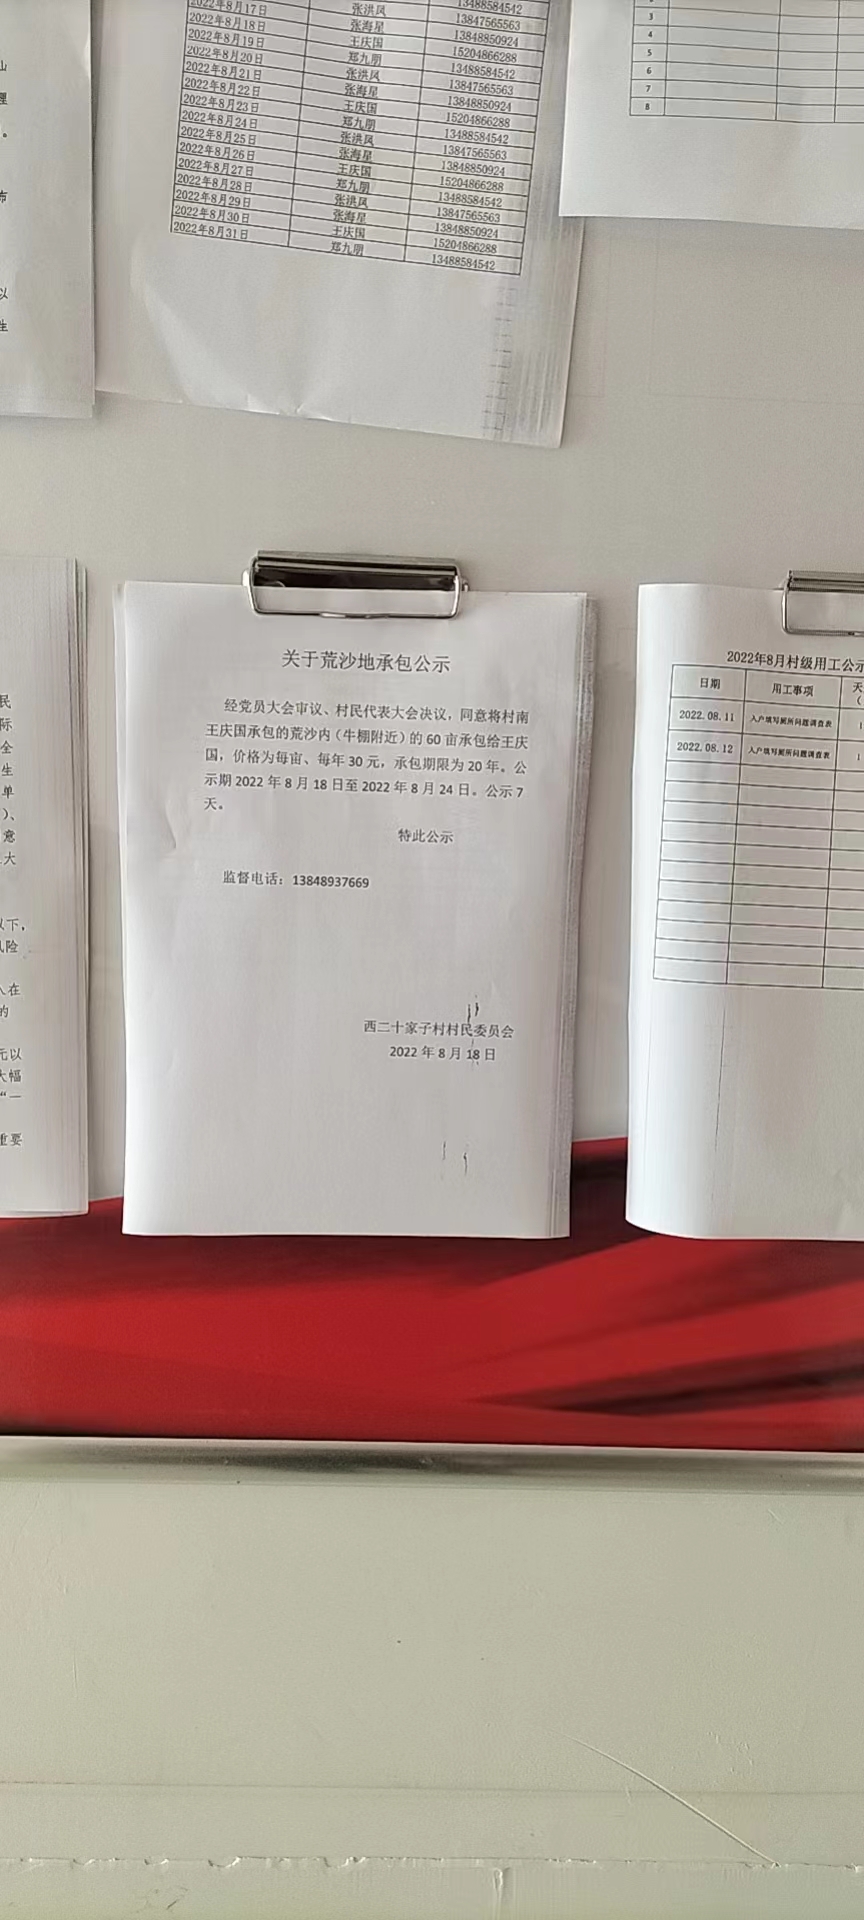 13488584542
张洪凤 13847565563
2022年8月17日 张海星 13848850924
2022年8月18日 王庆国 15204866288
2022年8月19日 郑九朋 13488584542
2022年8月20日 张洪凤 13847565563
2022年8月21日 张海星 13848850924
2022年8月22日 王庆国 15204866288
2022年8月23日 郑九朋 13488584542
2022年8月24日 张洪凤 13847565563
2022年8月25日 张海星 13848850924
2022年8月26日 王庆国 15204866288
2022年8月27日 郑九朋 13488584542
2022年8月28日 张洪凤 13847565563
2022年8月29日 张海星 13848850924
2022年8月30日 王庆国 15204866288
2022年8月31日 郑九朋 13488584542
3
4
5
6
7
8
关于荒沙地承包公示
经党员大会审议、村民代表大会决议，同意将村南
王庆国承包的荒沙内（牛棚附近）的 60 亩承包给王庆
国，价格为每亩、每年 30 元，承包期限为 20 年。公
示期 2022 年 8 月 18 日至 2022 年 8 月 24 日。公示 7
天。
特此公示
监督电话：13848937669
西二十家子村村民委员会
2022 年 8 月 18 日
2022年8月村级用工公示
日期 用工事项 天
2022.08.11 入户填写厕所问题调查表 1
2022.08.12 入户填写厕所问题调查表 1
民
际
全
生
单
）、
意
大
以下，
风险
人在
的
元以
大幅
“一
重要